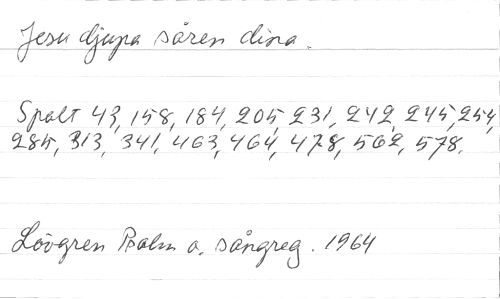 Jesu djupa såren dina.
Spalt 43, 158, 184, 205, 231, 242, 245, 254,
285, 313, 341, 463, 464, 478, 562, 578.
Lövgren Psalm o. sångreg. 1964